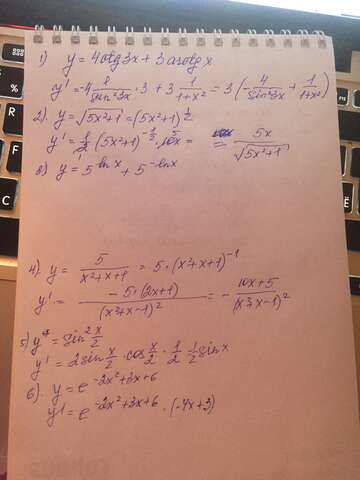 1) y = 4ctg3x + 3 arctg x
y' = -4 1/sin²3x · 3 + 3 1/1+x² = 3(-4/sin²3x + 1/1+x²)
2). y = √5x²+1 = (5x²+1)^1/2
y' = 1/2 (5x²+1)^-1/2 · 10x = = 5x/√5x²+1
3) y = 5^ln x + 5^-ln x
4). y = 5/x²+x+1 = 5·(x²+x+1)^-1
y' = -5·(2x+1)/(x²+x-1)² = - 10x+5/(x²+x-1)²
5) y = sin² x/2
y' = 2sin x/2 · cos x/2 · 1/2 · 1/2 sin x
6). y = e^-2x²+3x+6
y' = e^-2x²+3x+6 · (-4x+3)